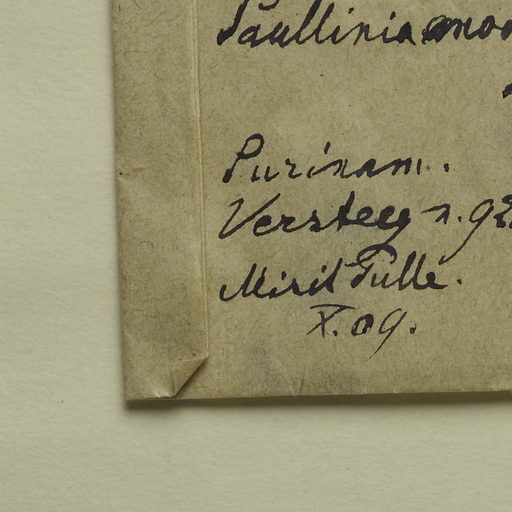 Paullinia
Surinam.
Versteeg n. 92
Misit Pulle.
X. 09.